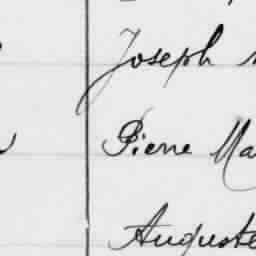 Joseph
Pierre Ma
Auguste